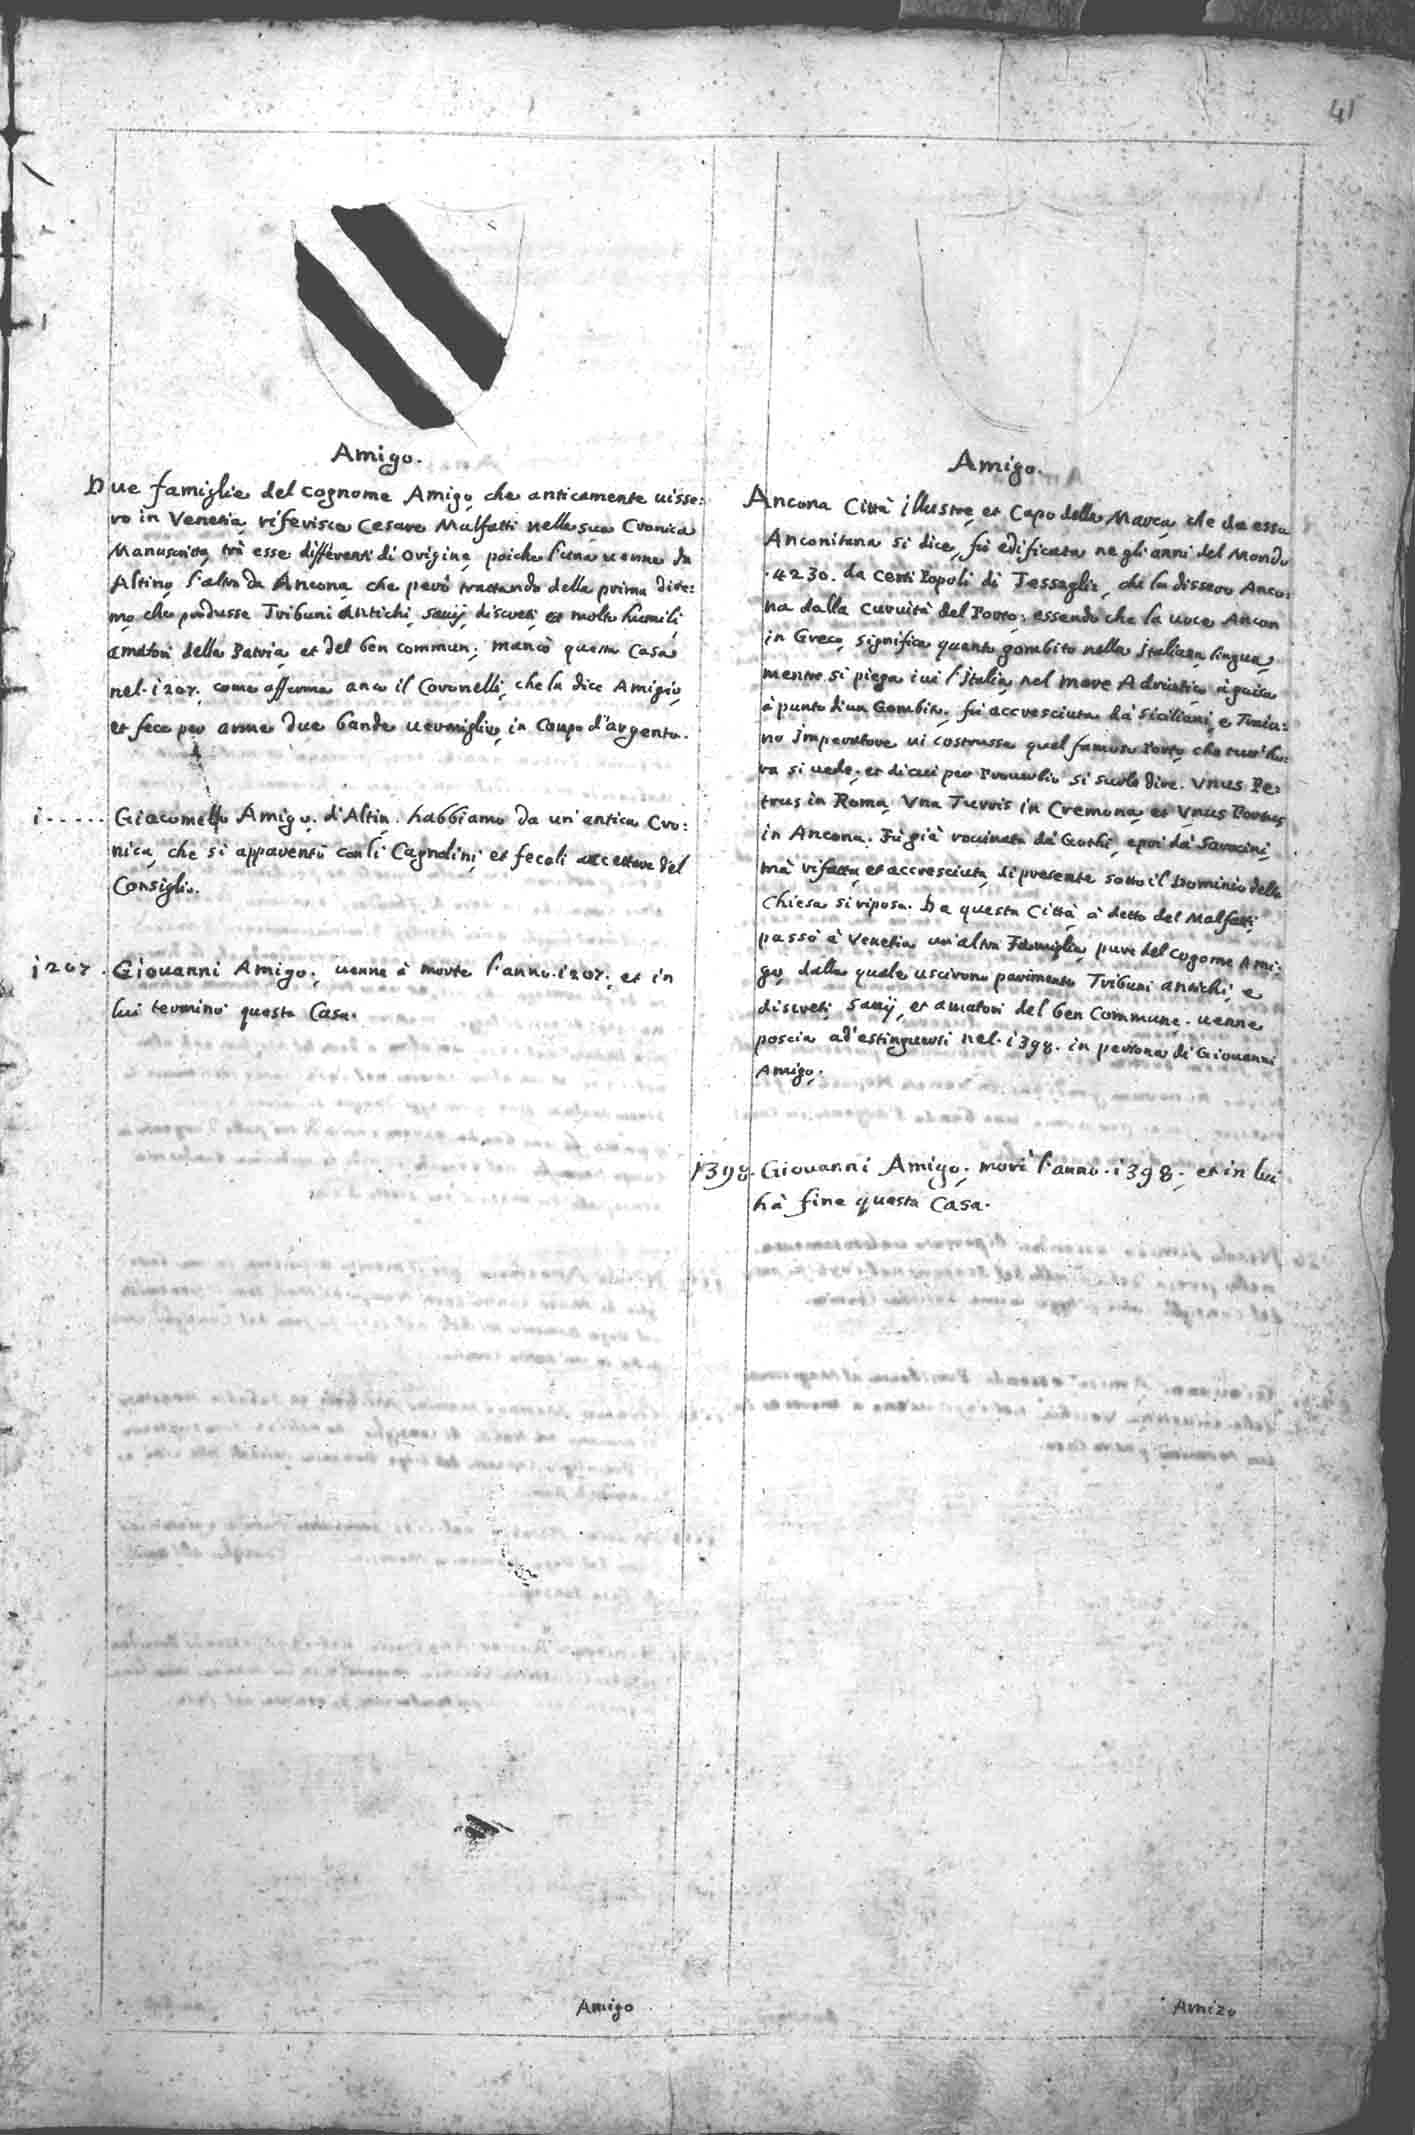 41
Amigo.
Due famiglie del cognome Amigo che anticamente uisse:
ro in Venetia, riferisce Cesare Malfatti nella sua Cronica
Manuscritta, trà esse differenti di origine, poiche l'una uenne da
Altino, l'altra da Ancona, che però trattando della prima dire:
mo, che produsse Tribuni Antichi, sauij, discreti, et molto humili,
amatori della Patria, et del ben commun; mancò questa Casa
nel. i207. come afferma anco il Coronelli, che la dice Amigio,
et fece per arme due bande uermiglie, in Campo d'argento.
i..... Giacomello Amigo. d'Altin. habbiamo da un'antica Cro:
nica, che si apparentò con li Cagnolini, et feceli accettare del
Consiglio.
i207. Giouanni Amigo; uenne à morte l'anno. i207; et in
lui terminò questa Casa.
Amigo
Amigo.
Ancona Città illustre, et Capo della Marca, che da essa
Anconitana si dice, fù edificata negli anni del Mondo
.4230. da Certi Popoli di Tessaglia, che la dissero Anco:
na dalla Curuità del Porto; essendo che la uoce Ancon
in Greco, significa quanto gombito nella Italiana lingua,
mentre si piega iui l'Italia, nel mare Adriatico à guisa
à punto d'un Gombito, fù accresciuta da Siciliani, e Traia:
no Imperatore ui costrusse quel famoso Porto, che tutt'ho:
ra si uede; et di cui per Prouerbio si suole dire. Vnus Pe:
trus in Roma, Vna Turris in Cremona, et Vnus Portus
in Ancona. Fù già rouinata da Gothi, e poi da Saracini,
mà rifatta, et accresciuta, di presente sotto il Dominio della
Chiesa si riposa. Da questa Città à detto del Malfatti
passò à Venetia un'altra Famiglia pure del Cogome Ami:
go, dalla quale uscirono parimente Tribuni antichi, e
discreti, sauij, et amatori del ben Commune. uenne
poscia ad'estinguersi nel. i398. in persona di Giouanni
Amigo.
i398. Giouanni Amigo; morì l'anno. i398; et in lui
hà fine questa Casa.
Amizo